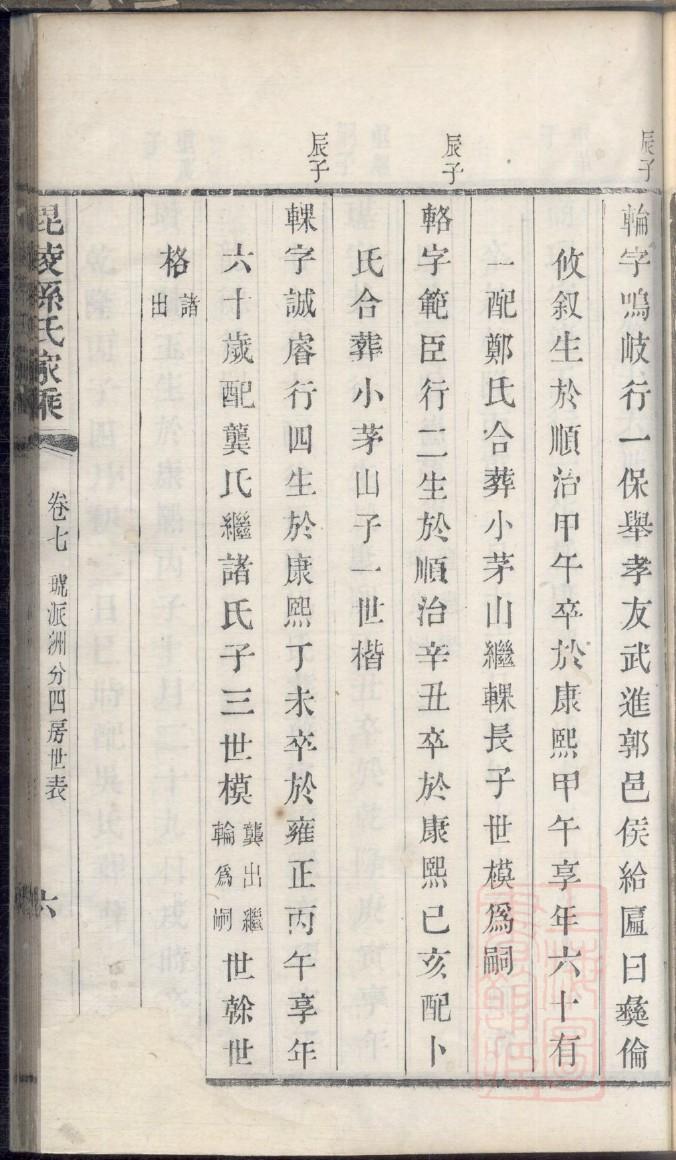 辰子
輪字鳴岐行一保舉孝友武進郭邑侯給匾曰彝倫
攸叙生於順治甲午卒於康熙甲午享年六十有
一配鄭氏合葬小茅山繼輠長子世模爲嗣
辰子
輅字範臣行二生於順治辛丑卒於康熙己亥配卜
氏合葬小茅山子一世楷
辰子
輠字誠睿行四生於康熙丁未卒於雍正丙午享年
六十歲配龔氏繼諸氏子三世模龔出繼輪爲嗣世榦世
格諸出
毘陵孫氏家乘
卷七
琥派洲分四房世表
六